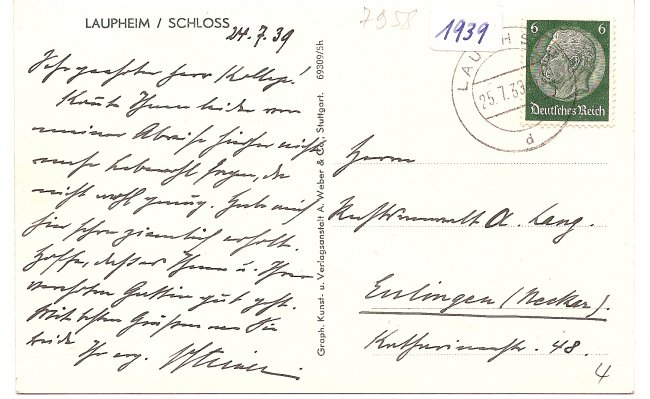 LAUPHEIM / SCHLOSS
24.7.39
Sehr geehrter Herr Kollege!
Konnte Ihnen leider vor
meiner Abreise hierher nicht
mehr Lebewohl sagen, da
nicht wohl genug. Habe mich
hier schon ziemlich erholt.
Hoffe, daß es Ihnen u. Ihrer
verehrten Gattin gut geht.
Mit besten Grüßen an Sie
beide Ihr erg.
Graph. Kunst- u. Verlagsanstalt A. Weber & Co., Stuttgart. 69309/5h
7958
1939
LAUPHEIM
25.7.39
d
6 6
Deutsches Reich
Herrn
Rechtsanwalt A. Lang.
Esslingen (Neckar).
Katharinenstr. 48.
4